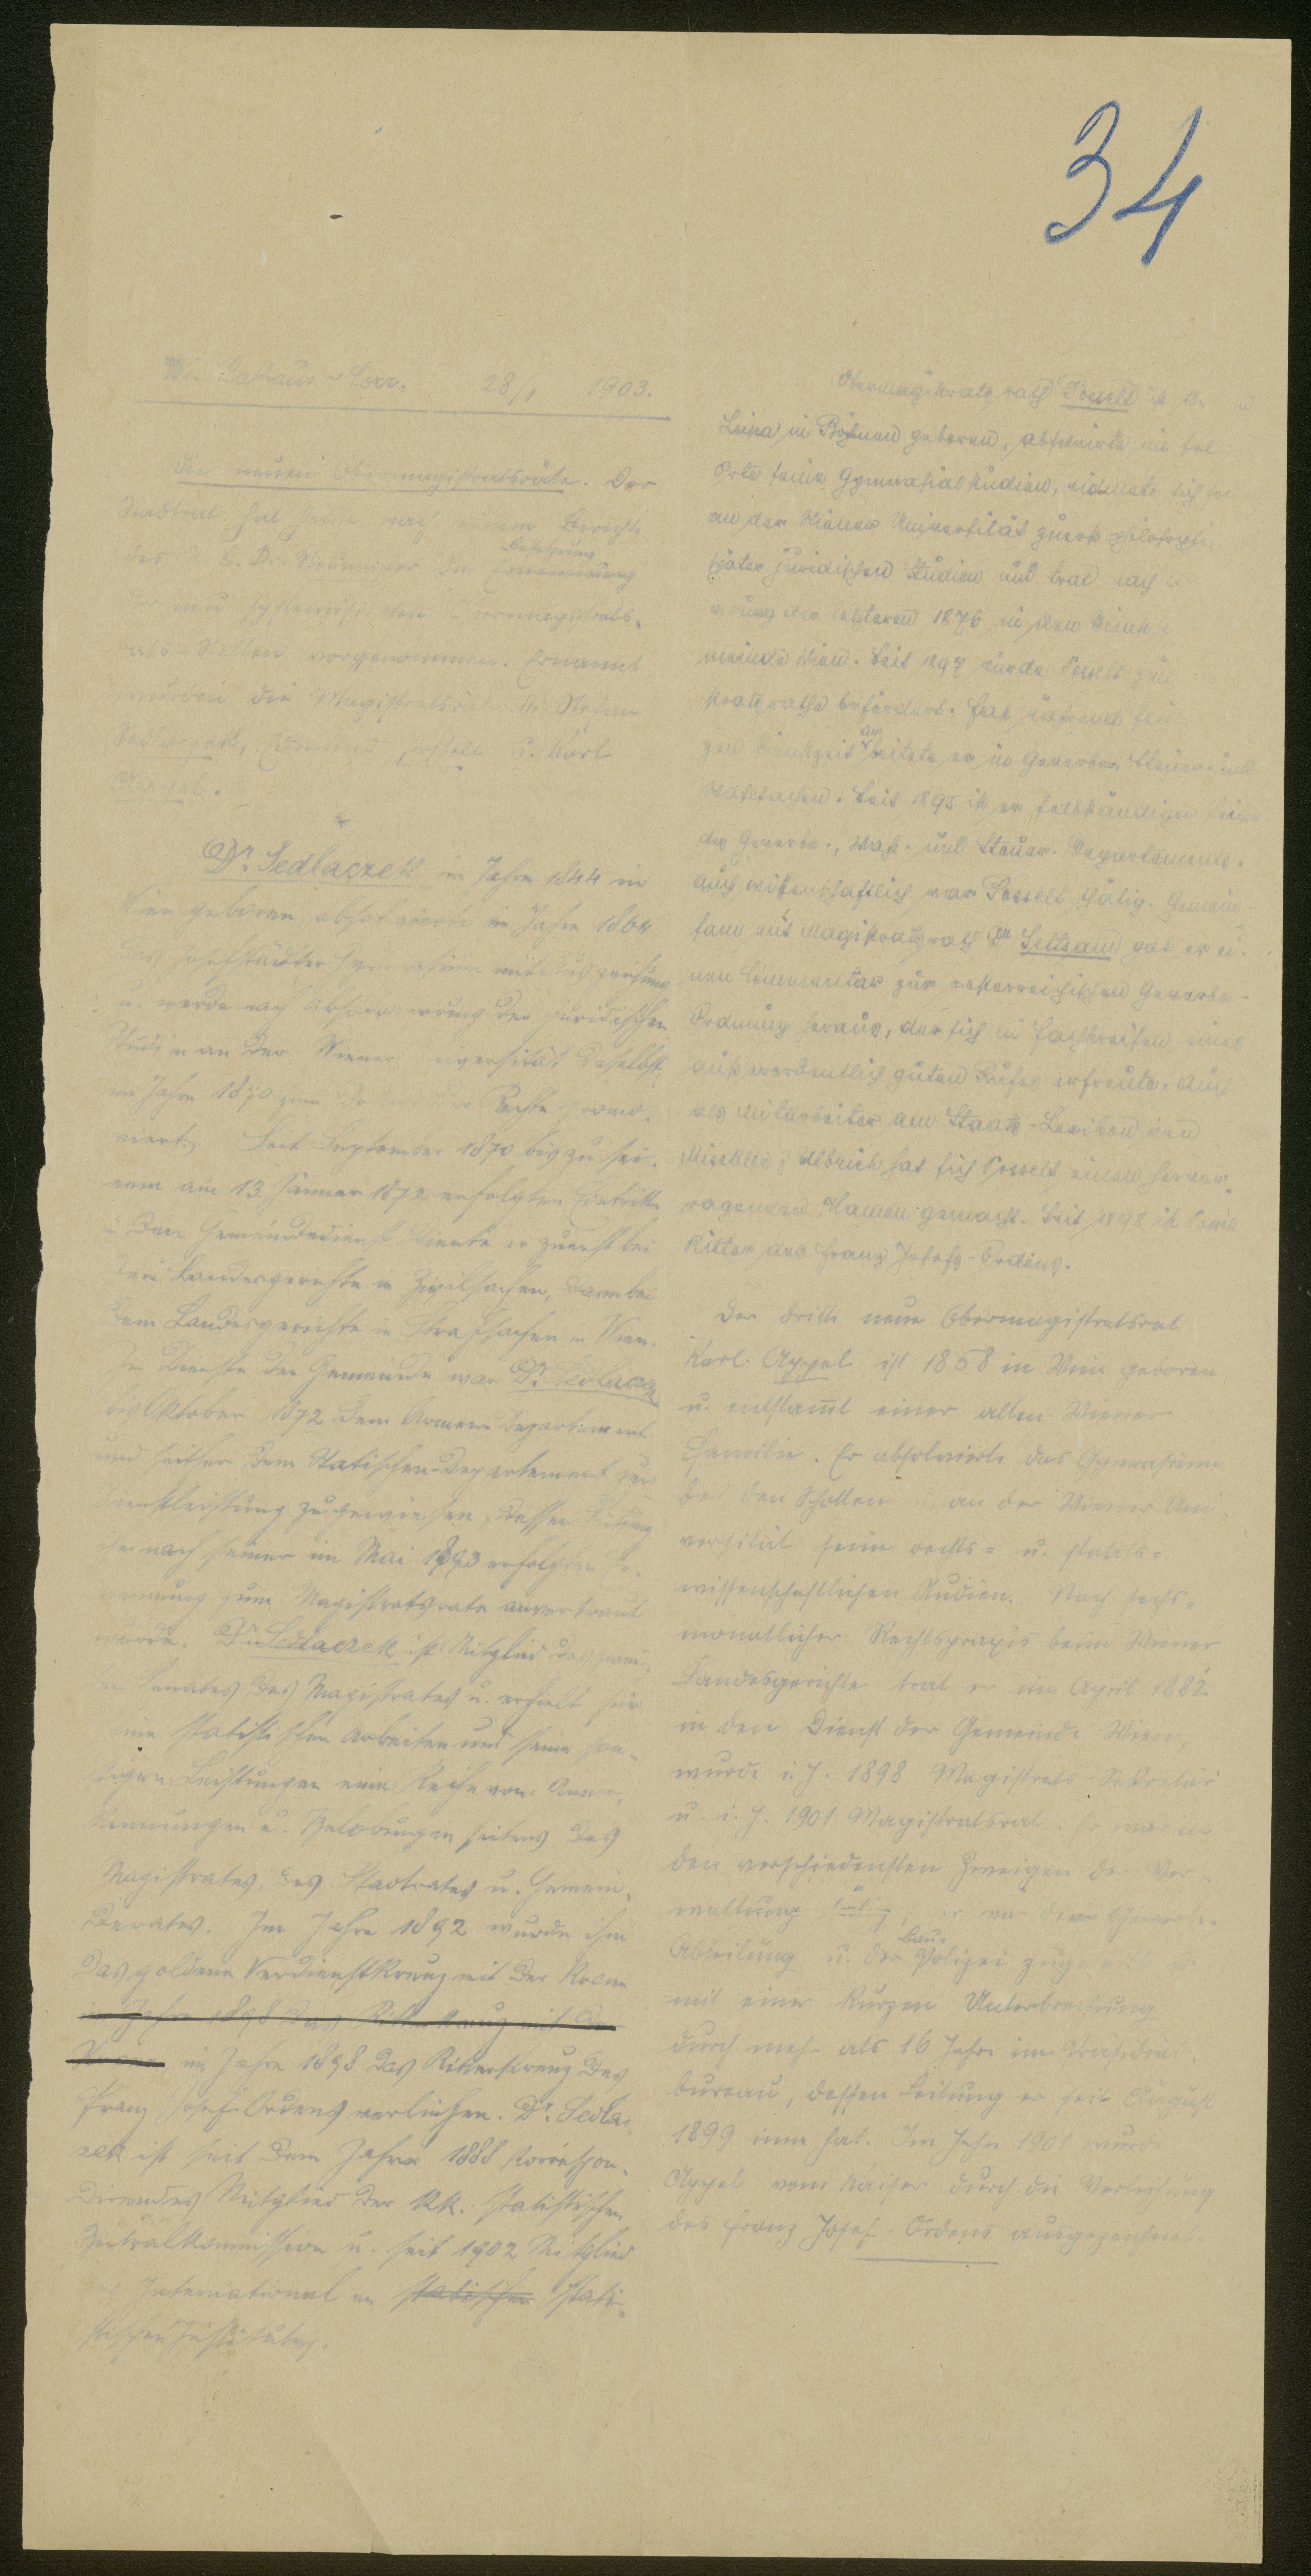 34
Wr. Rathaus-Corr. 28/1 1903.
Die neuen Obermagistratsräte. Der
Stadtrat hat heute nach einem Berichte
des V. B. Dr. Neumayer die Besetzung
der neu systemisierten Obermagistrats-
rats-Stellen vorgenommen. Ernannt
wurden die Magistratsräte Dr. Stefan
Sedlaczek, Posselt u. Karl
Appel.
*
Dr. Sedlaczek im Jahre 1844 in
Wien geboren, absolvierte im Jahre 1864
das Josefstädter Gymnasium mit Auszeichnung
u. wurde nach Absolvierung der juridischen
Studien an der Wiener Universität daselbst
im Jahre 1870 zum Doktor der Rechte promo-
viert. Seit September 1870 bis zu sei-
nem am 13. Jänner 1872 erfolgten Eintritte
in den Gemeindedienst diente er zuerst bei
dem Landesgerichte in Zivilsachen, dann bei
dem Landesgerichte in Strafsachen in Wien.
Im Dienste der Gemeinde war Dr. Sedlaczek
bis Oktober 1872 dem Armen-Departement
und seither dem Statischen-Departement zur
Dienstleistung zugewiesen, dessen Leitung
ihm nach seiner im Mai 1893 erfolgten Er-
nennung zum Magistratsrate anvertraut
wurde. Dr. Sedlaczek ist Mitglied des
Senates des Magistrates u. erhielt für
seine statistischen Arbeiten und seine son-
stigen Leistungen eine Reihe von Aner-
kennungen u. Belobungen seitens des
Magistrates, des Stadtrates u. Gemein-
derates. Im Jahre 1892 wurde ihm
das goldene Verdienstkreuz mit der Krone
im Jahre 1898 das Ritterkreuz mit der
Krone im Jahre 1898 das Ritterkreuz des
Franz Josef-Ordens verliehen. Dr. Sedla-
zek ist seit dem Jahre 1888 korrespon-
dierendes Mitglied der k.k. statistischen
Zentralkommission u. seit 1902 Mitglied
des Internationalen statischen stati-
stischen Institutes.
Obermagistratsrath Posselt ist
Leipa in Böhmen geboren, absolvierte im sel
Orte seine Gymnasialstudien, widmete sich
an der Wiener Universität zuerst philosophi
später juridischen Studien und trat nach
der letzteren 1876 in den Dienst
meinde Wien. Seit 1897 wurde Posselt zum
stratsrathe befördert. Fast während
gen Dienstzeit arbeitete er in Gewerbe-, Steuer- und
Wahlsachen. Seit 1895 ist er selbständiger Leiter
des Gewerbe-, Wahl- und Steuer-Departements.
Auch wissenschaftlich war Posselt thätig. Gemein-
sam mit Magistratsrath Dr. Seltsam gab er ei-
nen Commentar zur oesterreichischen Gewerbe-
Ordnung heraus, der sich in Fachkreisen eines
außerordentlich guten Rufes erfreute. Auch
als Mitarbeiter am Staats-Lexikon von
Mischler & Ulbrich hat sich Posselt einen hervor-
ragenden Namen gemacht. Seit 1898 ist Posselt
Ritter des Franz Josefs-Ordens.
Der dritte neue Obermagistratsrat
Karl Appel ist 1858 in Wien geboren
u. entstammt einer alten Wiener
Familie. Er absolvierte das Gymnasium
bei den Schotten u. an der Wiener Uni-
versität seine rechts- u. staats-
wissenschaftlichen Studien. Nach sechs-
monatlicher Rechtspraxis beim Wiener
Landesgerichte trat er im April 1882
in den Dienst der Gemeinde Wien,
wurde i. J. 1898 Magistrats-Sekretär
u. i. J. 1901 Magistratsrat. Er war in
den verschiedensten Zweigen der Ver-
waltung tätig, er war der Gewerbe-
Abteilung u. der Bau-Polizei zugeteilt u.
mit einer kurzen Unterbrechung
durch mehr als 16 Jahre im Präsidial-
bureau, dessen Leitung er seit August
1899 inne hat. Im Jahre 1901 wurde
Appel vom Kaiser durch die Verleihung
des Franz Josef-Ordens ausgezeichnet.